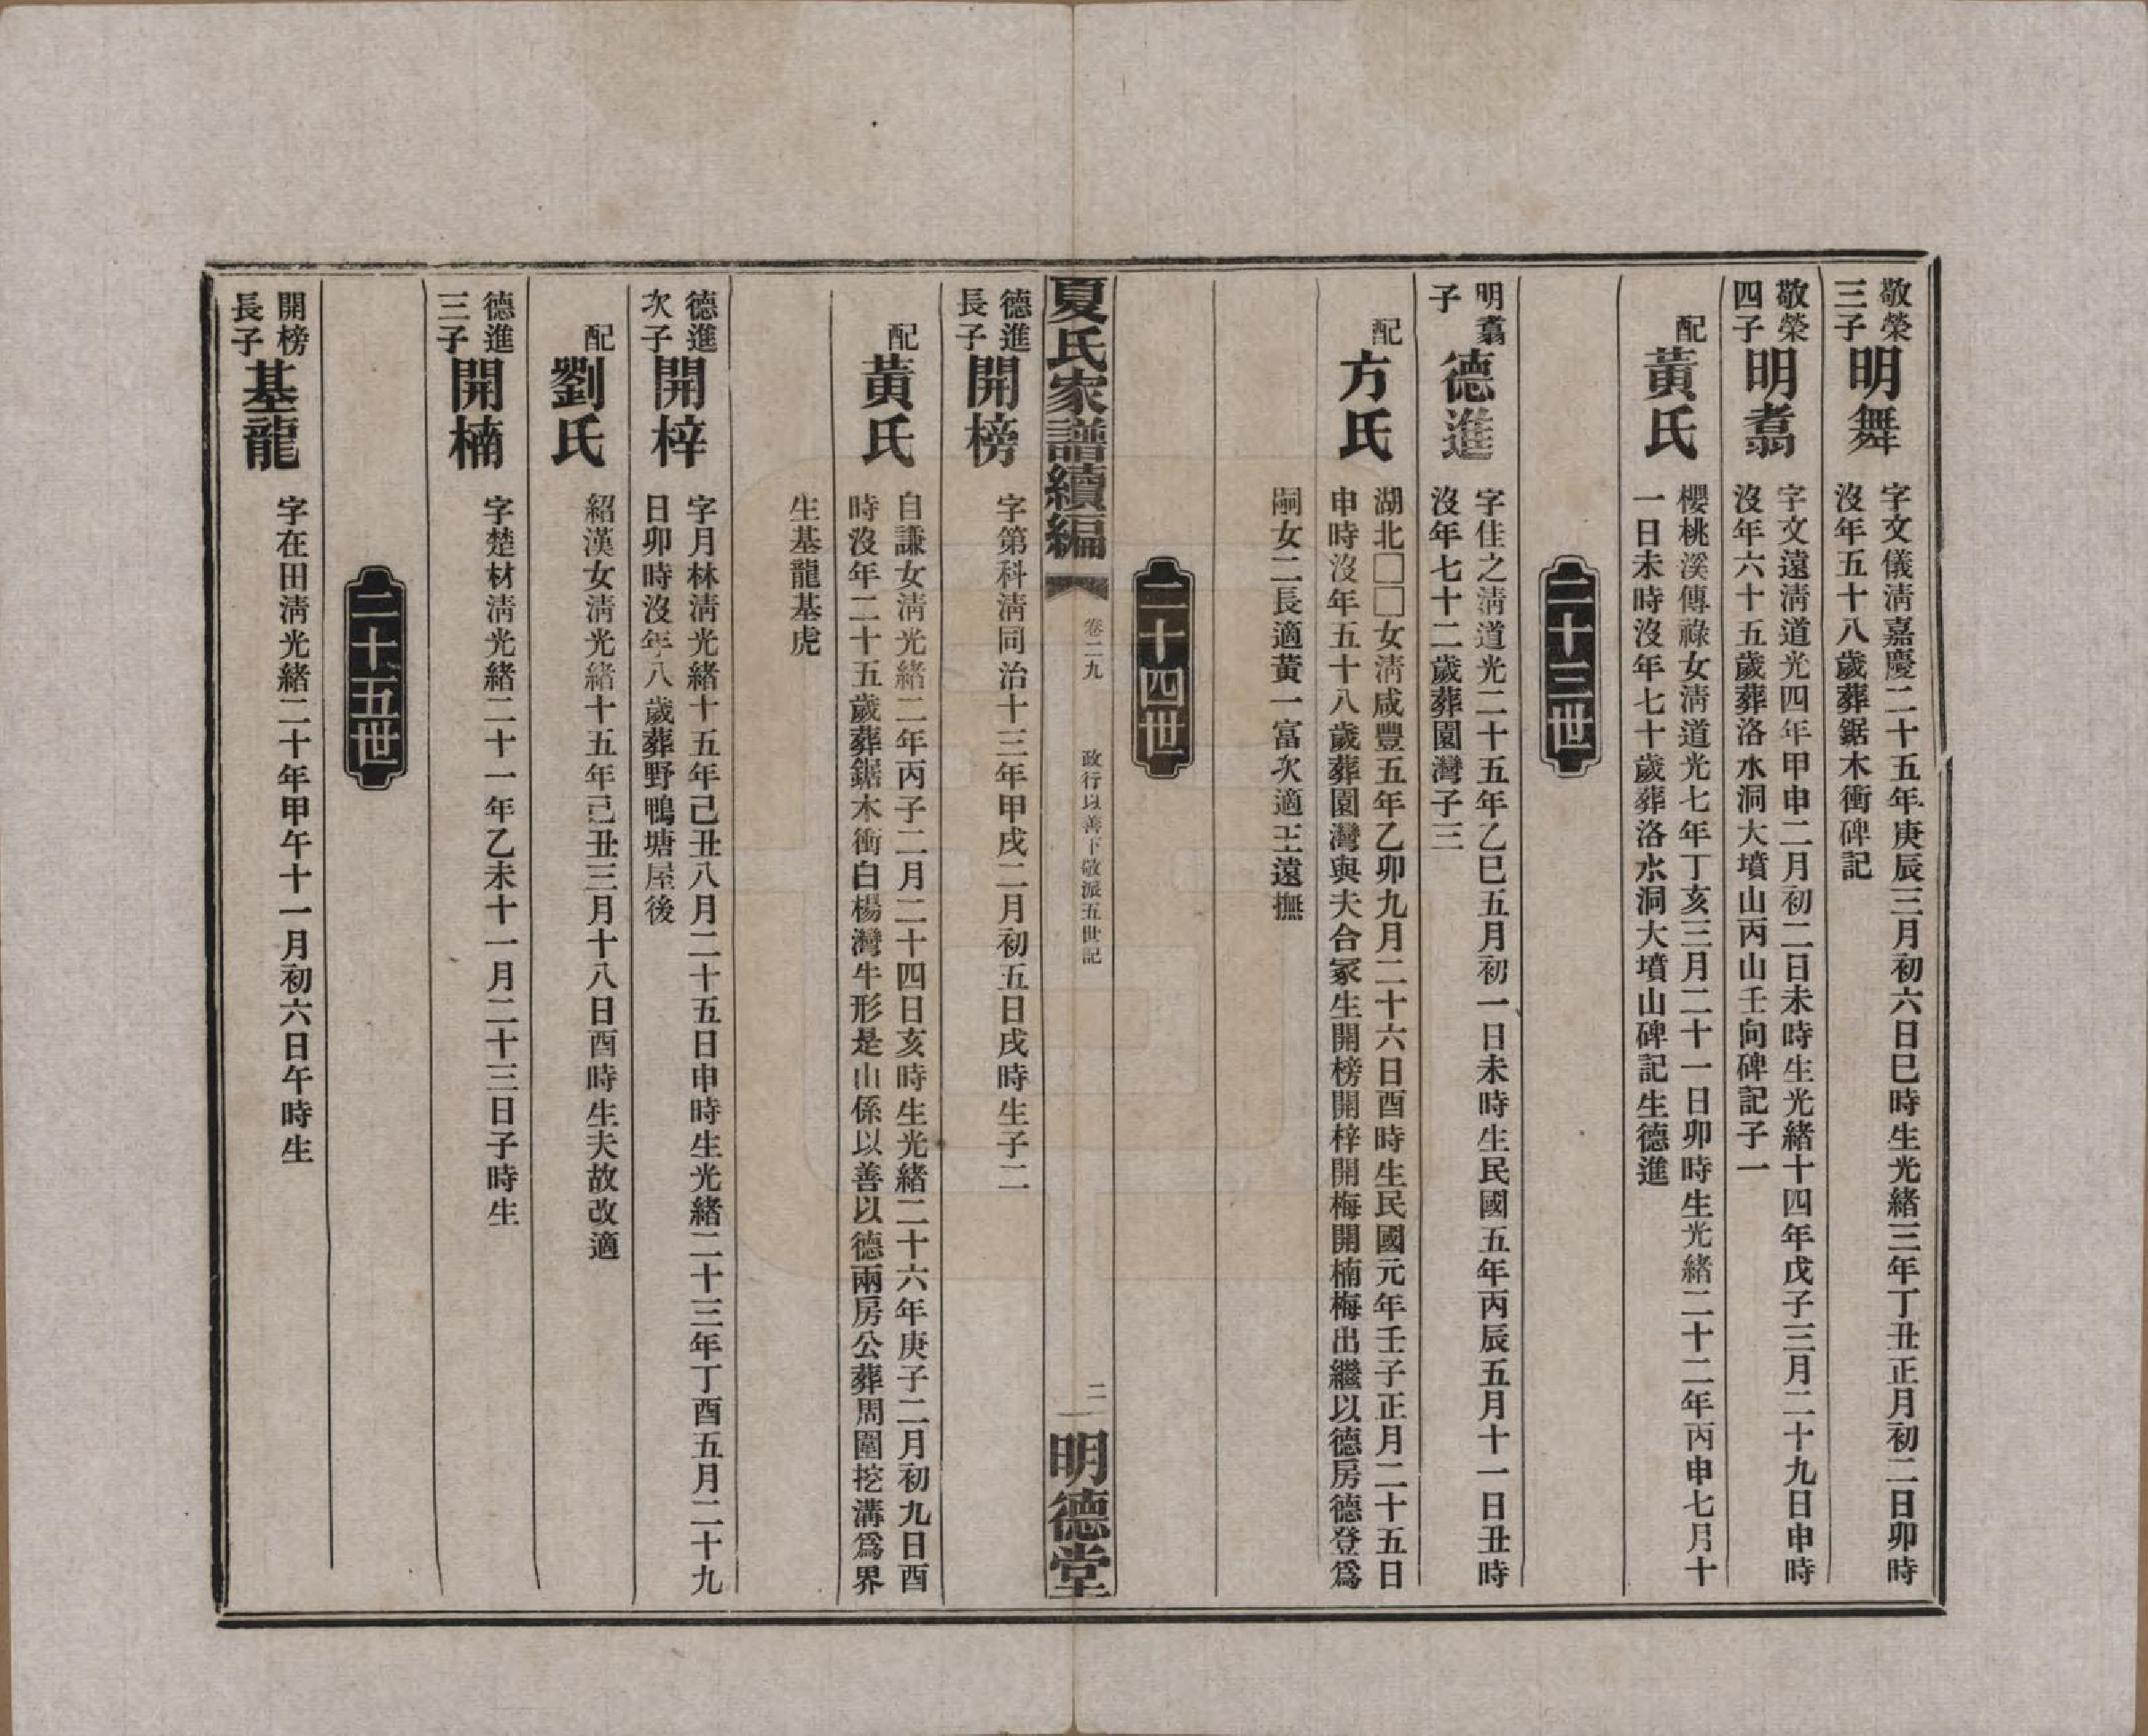 敬榮
三子
明舞
字文儀淸嘉慶二十五年庚辰三月初六日巳時生光緒三年丁丑正月初二日卯時
沒年五十八歲葬鋸木衝碑記
敬榮
四子
明翥
字文遠淸道光四年甲申二月初二日未時生光緒十四年戊子三月二十九日申時
沒年六十五歲葬洛水洞大墳山丙山壬向碑記子一
配
黃氏
櫻桃溪傳祿女淸道光七年丁亥三月二十一日卯時生光緒二十二年丙申七月十
一日未時沒年七十歲葬洛水洞大墳山碑記生德進
二十三世
明翥
子
德進
字佳之淸道光二十五年乙巳五月初一日未時生民國五年丙辰五月十一日丑時
沒年七十二歲葬園灣子三
配
方氏
湖北□□女淸咸豐五年乙卯九月二十六日酉時生民國元年壬子正月二十五日
申時沒年五十八歲葬園灣與夫合冢生開榜開梓開梅開楠梅出繼以德房德登爲
嗣女二長適黃一富次適王遠撫
二十四世
夏氏家譜續編
卷二九
政行以善下敬派五世記
二
明德堂
德進
長子
開榜
字第科淸同治十三年甲戌二月初五日戌時生子二
配
黃氏
自謙女淸光緒二年丙子二月二十四日亥時生光緒二十六年庚子二月初九日酉
時沒年二十五歲葬鋸木衝白楊灣牛形是山係以善以德兩房公葬周圍挖溝爲界
生基龍基虎
德進
次子
開梓
字月林淸光緒十五年己丑八月二十五日申時生光緒二十三年丁酉五月二十九
日卯時沒年八歲葬野鴨塘屋後
配
劉氏
紹漢女淸光緒十五年己丑三月十八日酉時生夫故改適
德進
三子
開楠
字楚材淸光緒二十一年乙未十一月二十三日子時生
二十五世
開榜
長子
基龍
字在田淸光緒二十年甲午十一月初六日午時生